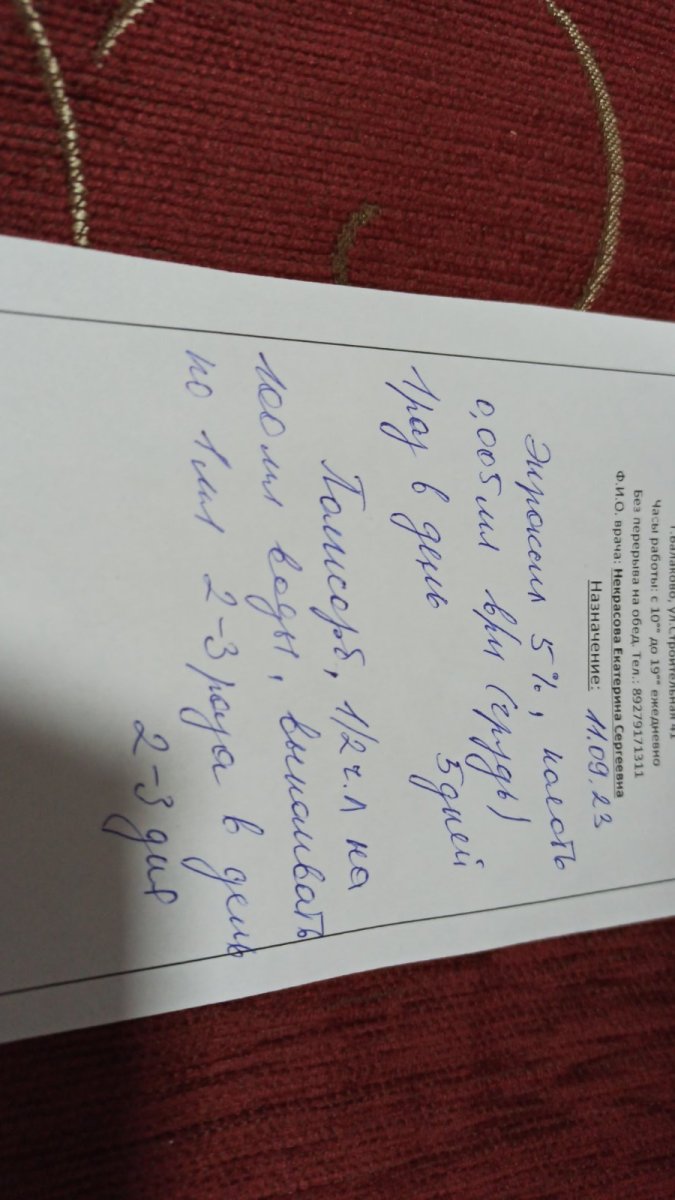 г.Балаково, ул.Строительная 41
Часы работы: с 10°° до 19°° ежедневно
Без перерыва на обед. Тел.: 89279171311
Ф.И.О. врача: Некрасова Екатерина Сергеевна
Назначение: 11.09.23
Энроксил 5%, колоть
0,005мл в/м (грудь)
1раз в день 5дней
Полисорб, 1/2 ч.л на
100мл воды, выпаивать
по 1мл 2-3 раза в день
2-3 дня